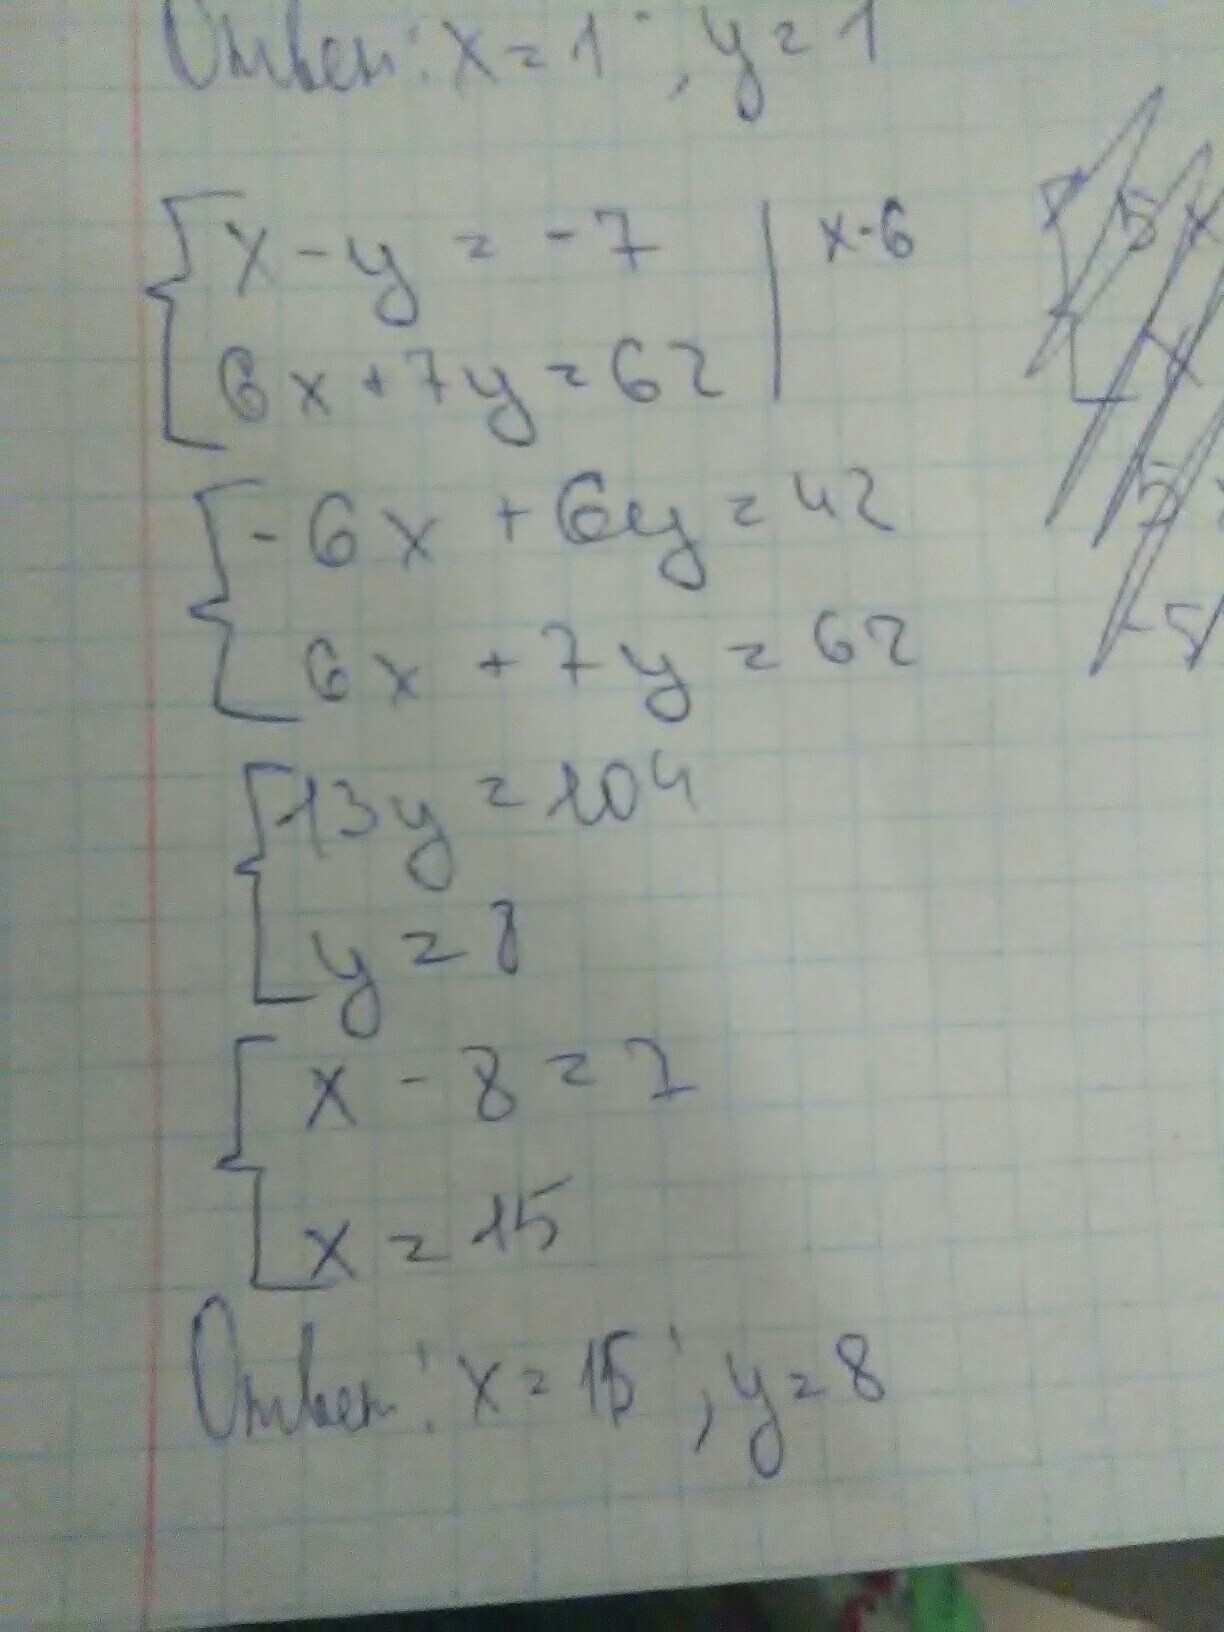 Ответ: x = 1 ; y = 1
x - y = -7 | x-6
6x + 7y = 62
-6x + 6y = 42
6x + 7y = 62
13y = 104
y = 8
x - 8 = 7
x = 15
Ответ: x = 15 ; y = 8